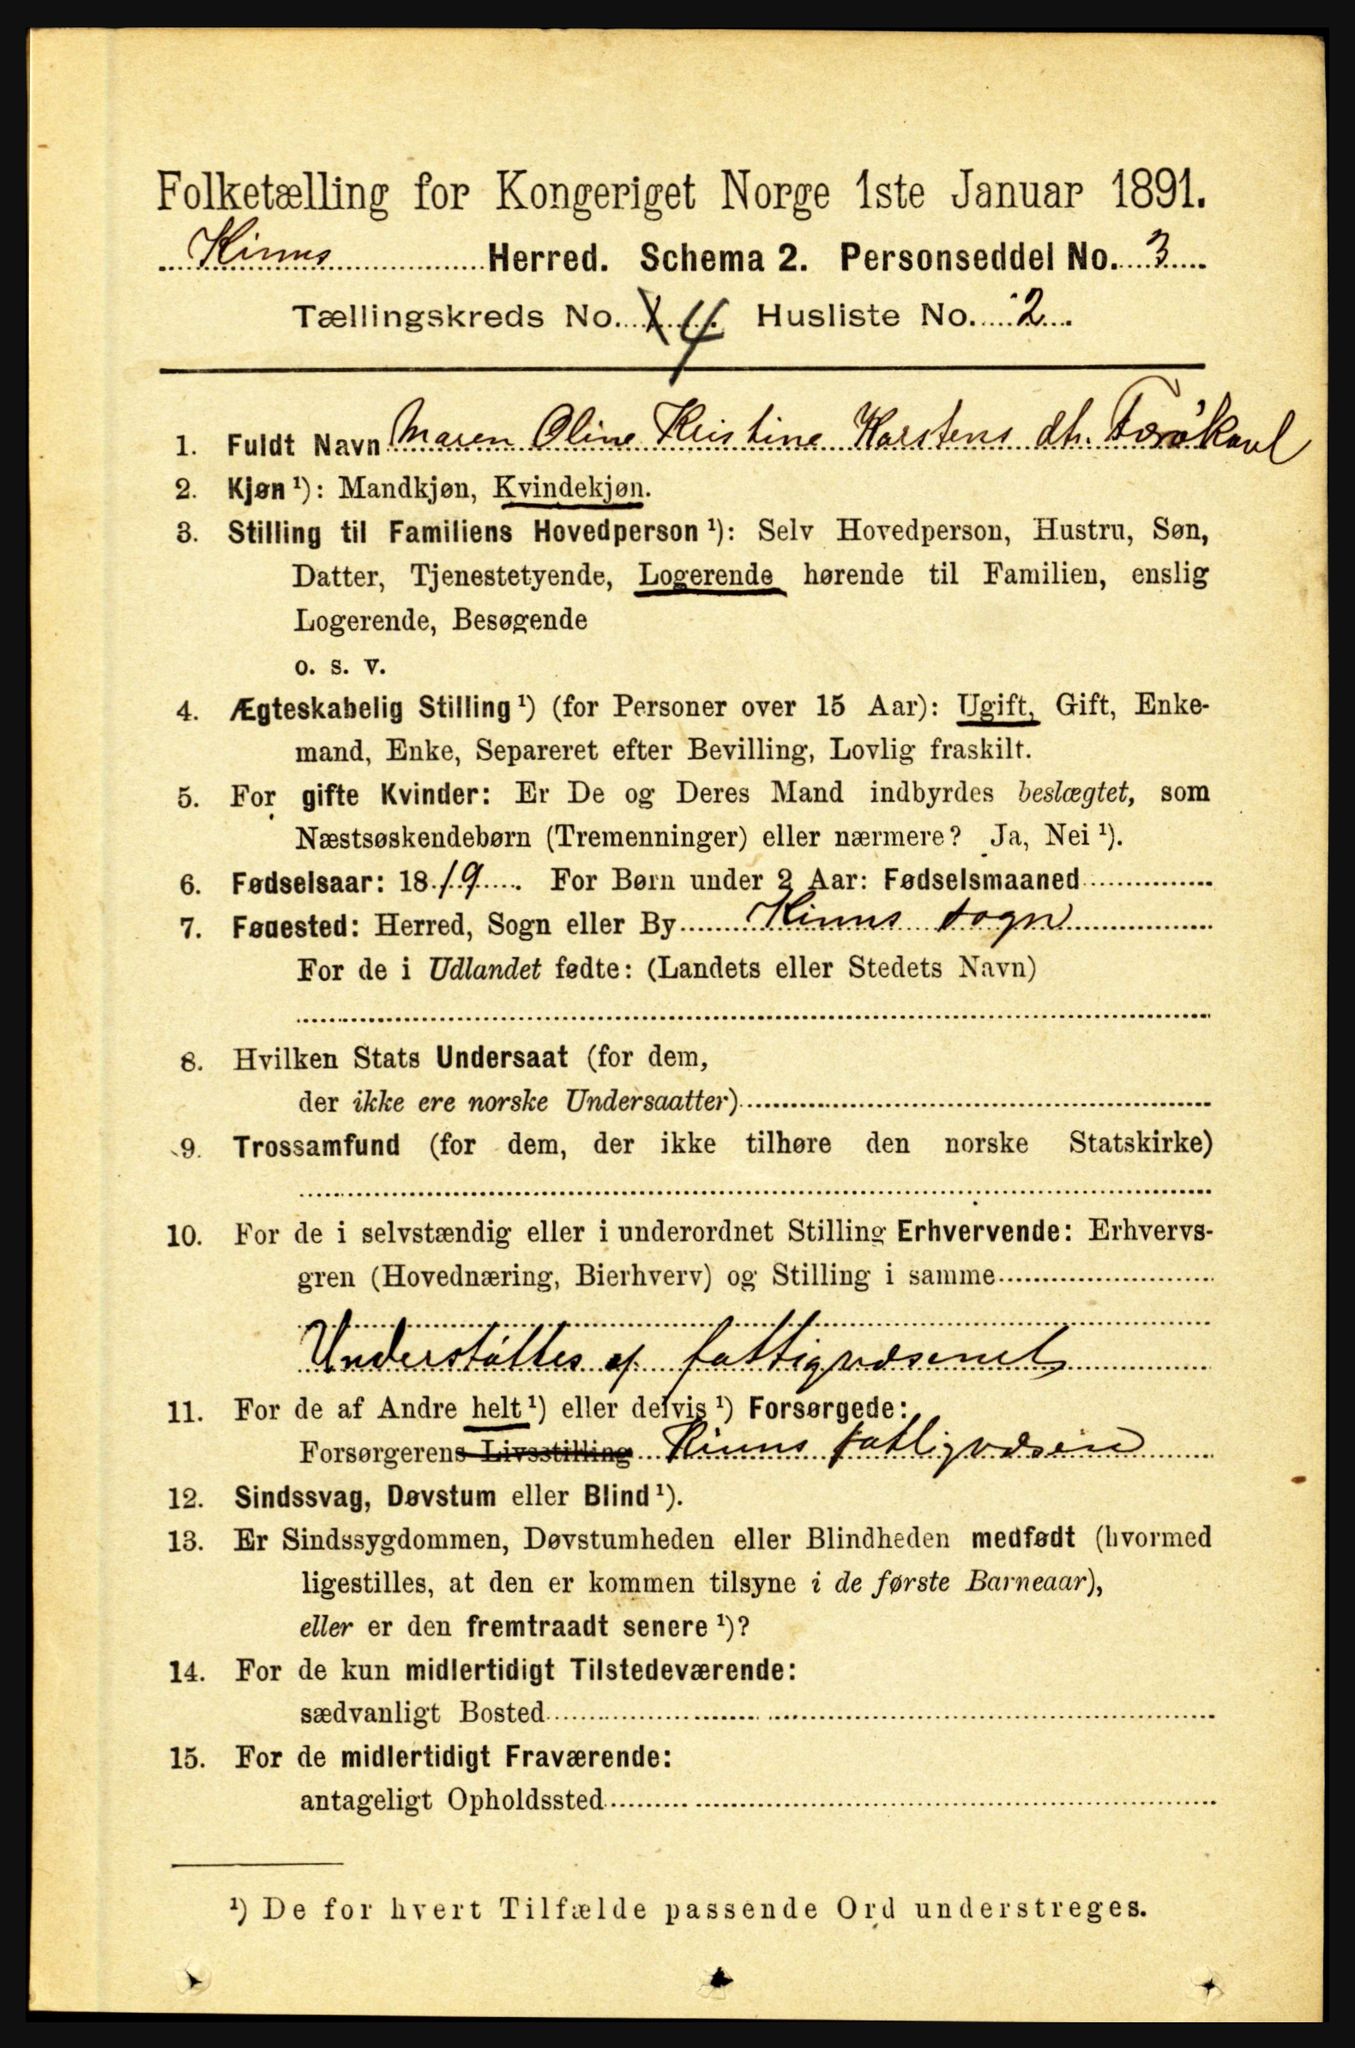 Folketælling for Kongeriget Norge 1ste Januar 1891.
Kinns Herred. Schema 2. Personseddel No. 3
Tællingskreds No. 4 Husliste No. 2
1. Fuldt Navn Maren Oline Kristine Karstens dtr.
2. Kjøn ¹): Mandkjøn, Kvindekjøn.
3. Stilling til Familiens Hovedperson ¹): Selv Hovedperson, Hustru, Søn,
Datter, Tjenestetyende, Logerende hørende til Familien, enslig
Logerende, Besøgende
o. s. v.
4. Ægteskabelig Stilling ¹) (for Personer over 15 Aar): Ugift, Gift, Enke-
mand, Enke, Separeret efter Bevilling, Lovlig fraskilt.
5. For gifte Kvinder: Er De og Deres Mand indbyrdes beslægtet, som
Næstsøskendebørn (Tremenninger) eller nærmere? Ja, Nei ¹).
6. Fødselsaar: 1819. For Børn under 2 Aar: Fødselsmaaned
7. Fødested: Herred, Sogn eller By Kinns sogn
For de i Udlandet fødte: (Landets eller Stedets Navn)
8. Hvilken Stats Undersaat (for dem,
der ikke ere norske Undersaatter)
9. Trossamfund (for dem, der ikke tilhøre den norske Statskirke)
10. For de i selvstændig eller i underordnet Stilling Erhvervende: Erhvervs-
gren (Hovednæring, Bierhverv) og Stilling i samme
Understøttes af fattigvæsenet
11. For de af Andre helt ¹) eller delvis ¹) Forsørgede:
Forsørgerens Livsstilling Kinns fattigvæsen
12. Sindssvag, Døvstum eller Blind ¹).
13. Er Sindssygdommen, Døvstumheden eller Blindheden medfødt (hvormed
ligestilles, at den er kommen tilsyne i de første Barneaar),
eller er den fremtraadt senere ¹)?
14. For de kun midlertidigt Tilstedeværende:
sædvanligt Bosted
15. For de midlertidigt Fraværende:
antageligt Opholdssted
¹) De for hvert Tilfælde passende Ord understreges.